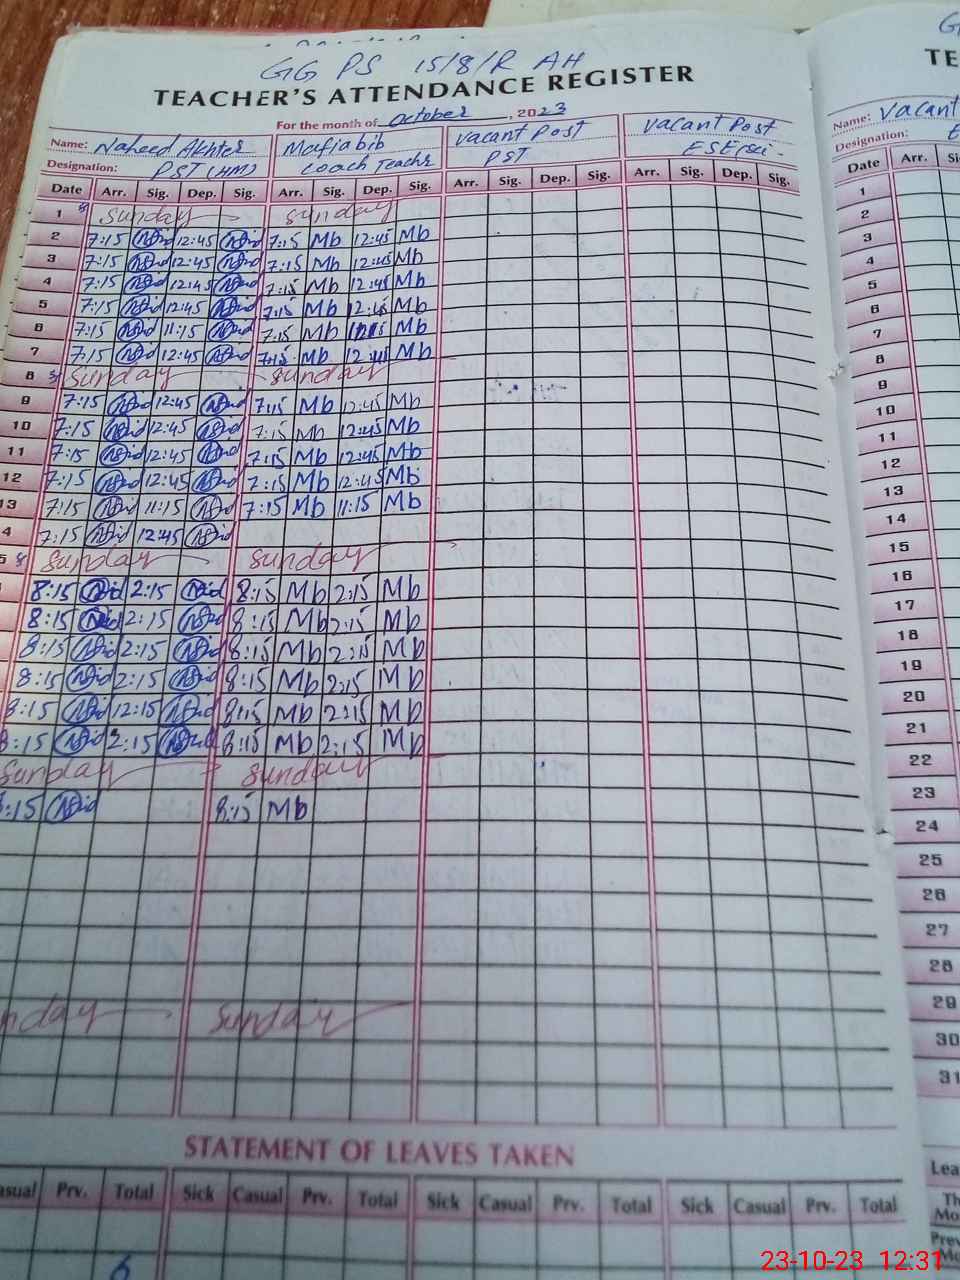 GG PS 15/8/R AH
TEACHER'S ATTENDANCE REGISTER
For the month of October, 2023
Name: Naheed Akhter Mafia bib vacant Post vacant Post
Designation: PST (HM) Coach Teachr PST ESE(sci.
Date Arr. Sig. Dep. Sig. Arr. Sig. Dep. Sig. Arr. Sig. Dep. Sig. Arr. Sig. Dep. Sig.
1 Sunday Sunday
2 7:15 12:45 7:15 Mb 12:45 Mb
3 7:15 12:45 7:15 Mb 12:45 Mb
4 7:15 12:45 7:15 Mb 12:45 Mb
5 7:15 12:45 7:15 Mb 12:45 Mb
6 7:15 11:15 7:15 Mb Mb
7 7:15 12:45 7:15 Mb 12:45 Mb
8 Sunday Sunday
9 7:15 12:45 7:15 Mb 12:45 Mb
10 7:15 12:45 7:15 Mb 12:45 Mb
11 7:15 12:45 7:15 Mb 12:45 Mb
12 7:15 12:45 7:15 Mb 12:45 Mb
13 7:15 11:15 7:15 Mb 11:15 Mb
4 7:15 12:45
5 Sunday Sunday
8:15 2:15 8:15 Mb 2:15 Mb
8:15 2:15 8:15 Mb 2:15 Mb
8:15 2:15 8:15 Mb 2:15 Mb
8:15 2:15 8:15 Mb 2:15 Mb
8:15 12:15 8:15 Mb 2:15 Mb
8:15 2:15 8:15 Mb 2:15 Mb
Sunday Sunday
:15 8:15 Mb
nday Sunday
STATEMENT OF LEAVES TAKEN
asual Prv. Total Sick Casual Prv. Total Sick Casual Prv. Total Sick Casual Prv. Total
6
G
TE
Name: Vacant
Designation: E
Date Arr. Si
1
2
3
4
5
6
7
8
9
10
11
12
13
14
15
16
17
18
19
20
21
22
23
24
25
26
27
28
29
30
31
Lea
Th
Mo
Prev
Mo
23-10-23 12:31